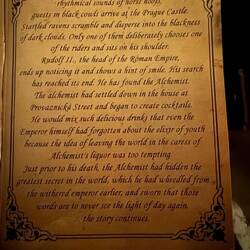 rhythmical sounds of horse hoofs,
guests on black coats arrive at the Prague Castle.
Startled ravens scramble and disperse into the blackness
of dark clouds. Only one of them deliberately chooses one
of the riders and sits on his shoulder.
Rudolf II., the head of the Roman Empire,
ends up noticing it and shows a hint of smile. His search
has reached its end. He has found the Alchemist.
The alchemist had settled down in the house at
Provaznická Street and began to create cocktails.
He would mix such delicious drinks that even the
Emperor himself had forgotten about the elixir of youth
because the idea of leaving the world in the caress of
Alchemist's liquor was too tempting.
Just prior to his death, the Alchemist had hidden the
greatest secret in the world, which he had wheedled from
the withered emperor earlier, and sworn that those
words are to never see the light of day again.
the story continues.